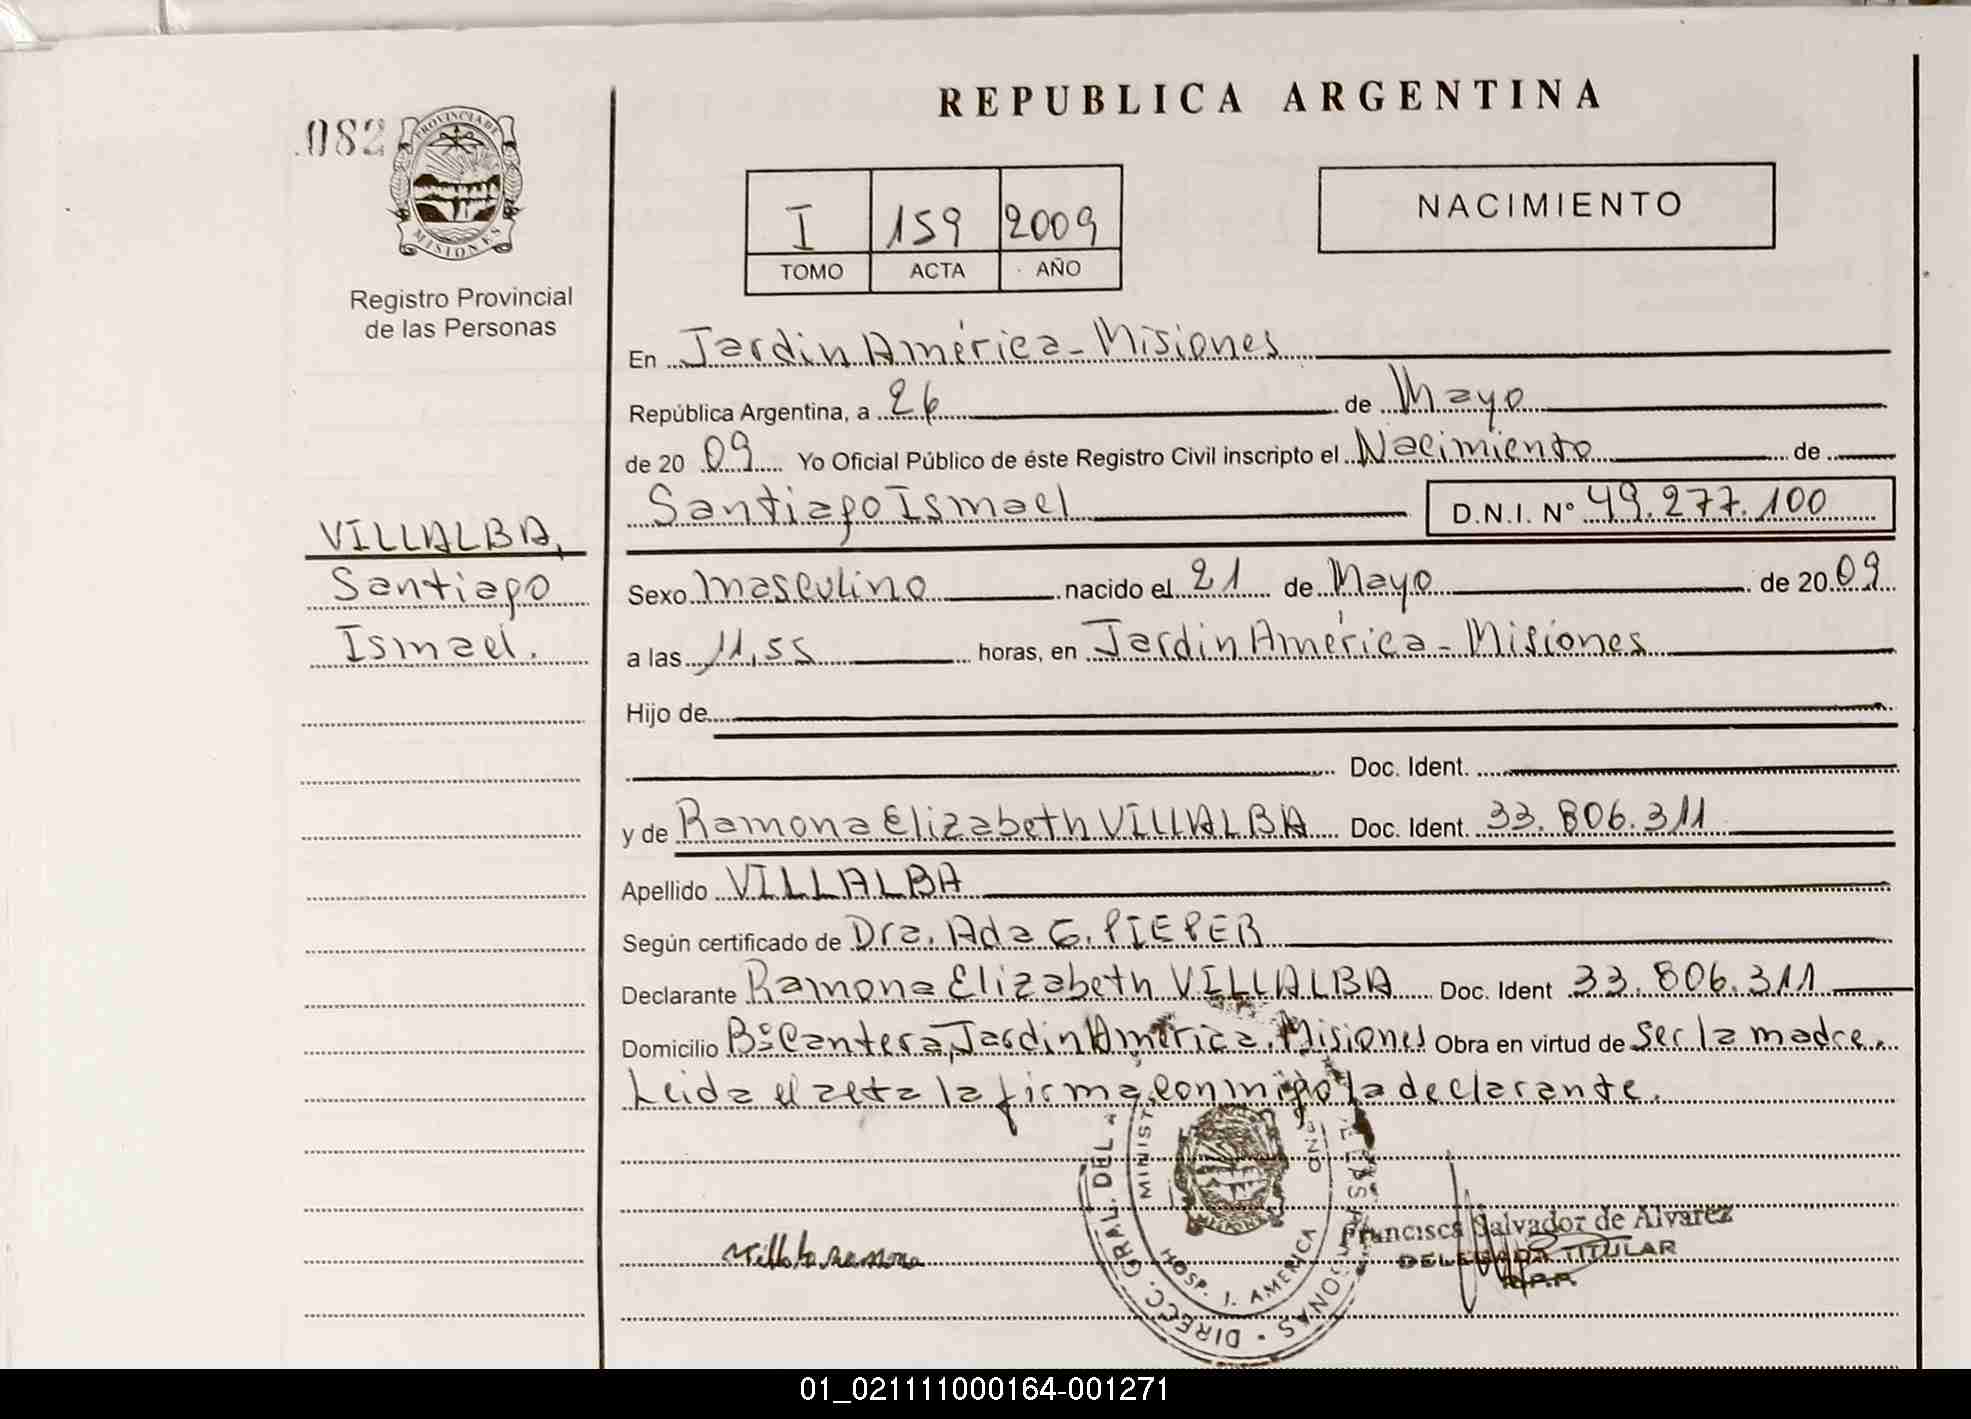 REPUBLICA ARGENTINA
082
PROVINCIA DE
MISIONES
Registro Provincial
de las Personas
I 159 2009
TOMO ACTA AÑO
NACIMIENTO
En Jardin América - Misiones
República Argentina, a 26 de Mayo
de 20 09 Yo Oficial Público de éste Registro Civil inscripto el Nacimiento de
Santiago Ismael D.N.I. N° 49.277.100
VILLALBA,
Santiago
Ismael.
Sexo masculino nacido el 21 de Mayo de 20 09
a las 11,55 horas, en Jardin América - Misiones
Hijo de
Doc. Ident.
y de Ramona Elizabeth VILLALBA Doc. Ident. 33.806.311
Apellido VILLALBA
Según certificado de Dra. Ada G. PIEPER
Declarante Ramona Elizabeth VILLALBA Doc. Ident 33.806.311
Domicilio B° Cantera, Jardin América. Misiones Obra en virtud de ser la madre.
Leida el acta la firma conmigo la declarante.
DIRECC. GRAL. DEL
MINIST
HOSP. J. AMERICA
MISIONES
Francisca Salvador de Alvarez
DELEGADA TITULAR
R.P.P.
01_021111000164-001271